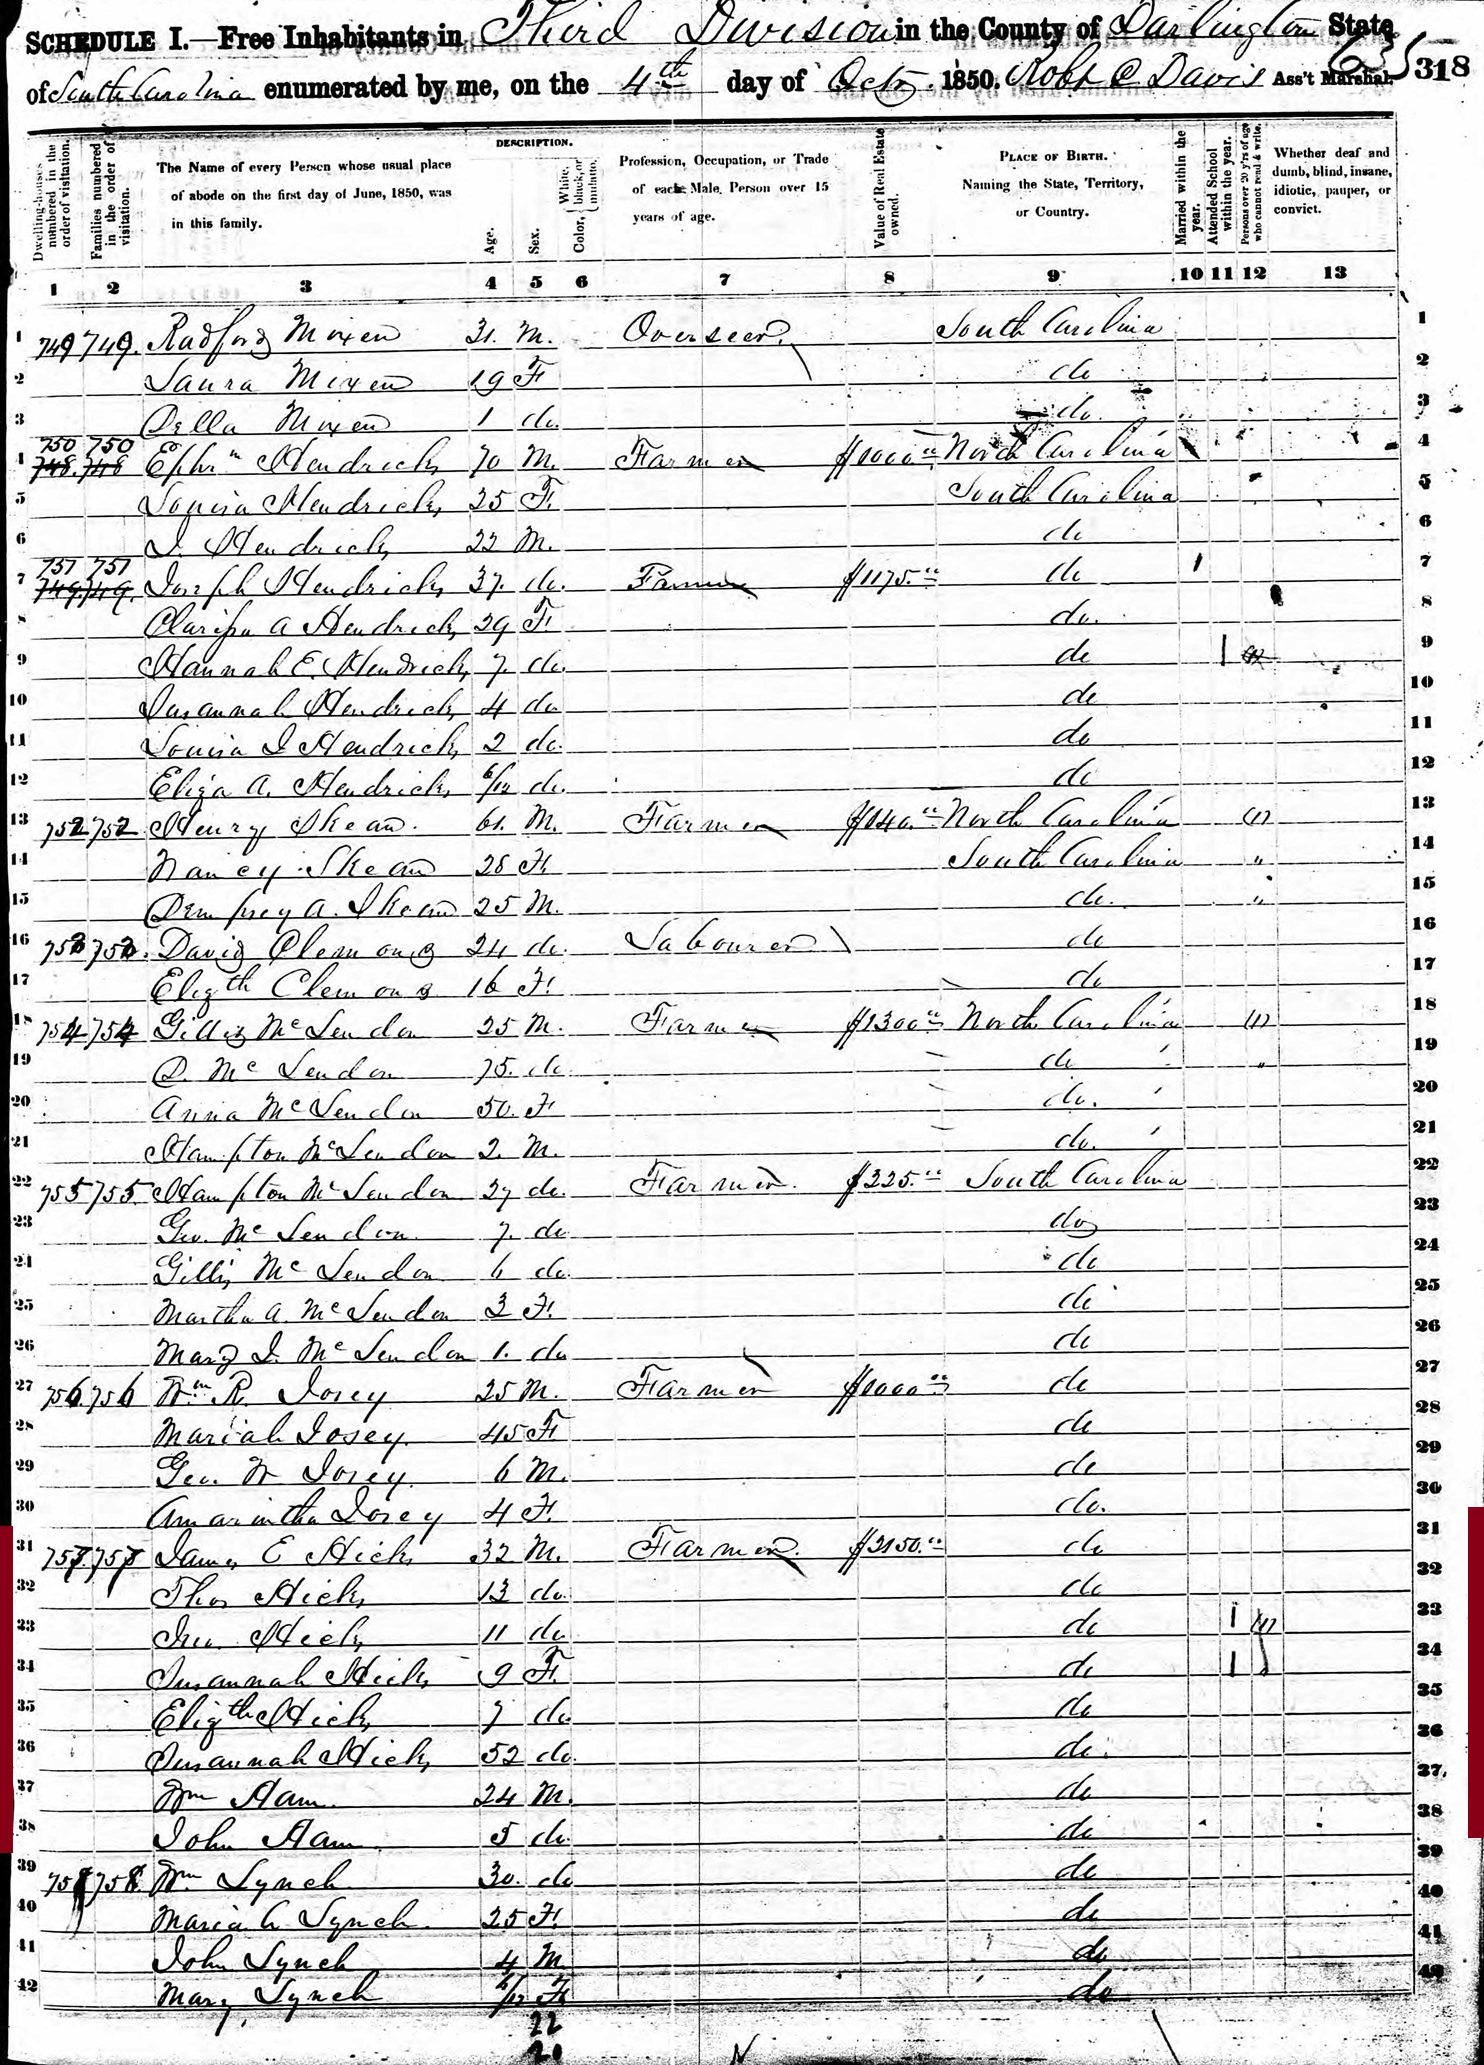 SCHEDULE I.—Free Inhabitants in Third Division in the County of Darlington State
of South Carolina enumerated by me, on the 4th day of Octr. 1850. Robt C Davis Ass't Marshal. 635 318
Dwelling-houses numbered in the order of visitation. Families numbered in the order of visitation. The Name of every Person whose usual place of abode on the first day of June, 1850, was in this family. DESCRIPTION. Age. Sex. Color, {White, black, or mulatto. Profession, Occupation, or Trade of each Male Person over 15 years of age. Value of Real Estate owned. PLACE OF BIRTH. Naming the State, Territory, or Country. Married within the year. Attended School within the year. Persons over 20 y'rs of age who cannot read & write. Whether deaf and dumb, blind, insane, idiotic, pauper, or convict.
1 2 3 4 5 6 7 8 9 10 11 12 13
1 749 749. Radford Mixen 31. M. Overseer. South Carolina 1
2 Laura Mixen 19 F do 2
3 Della Mixen 1 do. do. 3
750 750
4 748. 748 Ephrm Hendricks 70 M. Farmer $1000.00 North Carolina 4
5 Louisa Hendricks 35 F. South Carolina 5
6 J. Hendricks 22 M. do 6
751 751
7 749. 749. Joseph Hendricks 37. do. Farmer $1175.00 do 1 7
8 Clarissa A Hendricks 29 F. do. 8
9 Hannah E. Hendricks 7. do. do 1 9
10 Susannah Hendricks 4 do do 10
11 Louisa J Hendricks 2 do. do 11
12 Eliza A. Hendricks 6/12 do. do 12
13 752 752. Henry Skean. 61. M. Farmer $140.00 North Carolina (1) 13
14 Nancy Skean 28 F. South Carolina " 14
15 Dempsey A. Skean 25 M. do. " 15
16 753 753. David Clemons 24 do. Labourer do 16
17 Elizth Clemons 16 F. do 17
18 754 754 Gillis McLendon 25 M. Farmer $1300.00 North Carolina (1) 18
19 D. McLendon 75. do. do " 19
20 Anna McLendon 50. F do. 20
21 Hampton McLendon 2. M. do. 21
22 755 755. Hampton McLendon 37 do. Farmer. $325.00 South Carolina 22
23 Geo. McLendon 7. do do 23
24 Gillis McLendon 6 do. do 24
25 Martha A. McLendon 3 F. do 25
26 Mary J. McLendon 1. do do 26
27 756. 756 Wm R. Josey 25 M. Farmer $1000.00 do 27
28 Mariah Josey. 45 F do 28
29 Geo. W Josey. 6 M. do 29
30 Amarintha Josey 4 F. do. 30
31 757. 757 James E Hicks 32 M. Farmer. $3150.00 do 31
32 Thos Hicks 13 do. do 32
33 Jno. Hicks 11 do do 1 (1) 33
34 Susannah Hicks 9 F. do 1 34
35 Elizth Hicks 7 do. do 35
36 Susannah Hicks 52 do. do. 36
37 Wm Ham. 24 M. do 37
38 John Ham 5 do. do 38
39 758 758. Wm Lynch 30. do do 39
40 Maria A Lynch. 25 F. do 40
41 John Lynch 4 M do 41
42 Mary Lynch 6/12 F do 42
22
20